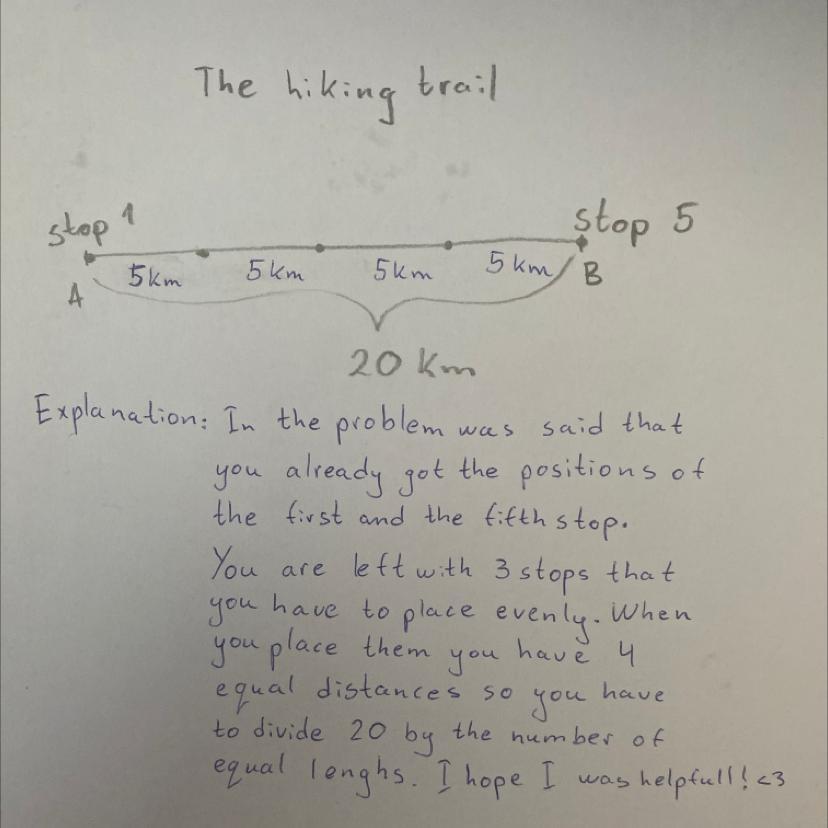 The hiking trail
stop 1
stop 5
5km
5km
5km
5km
A
B
20 km
Explanation: In the problem was said that
you already got the positions of
the first and the fifth stop.
You are left with 3 stops that
you have to place evenly. When
you place them you have 4
equal distances so you have
to divide 20 by the number of
equal lenghs. I hope I was helpfull! <3